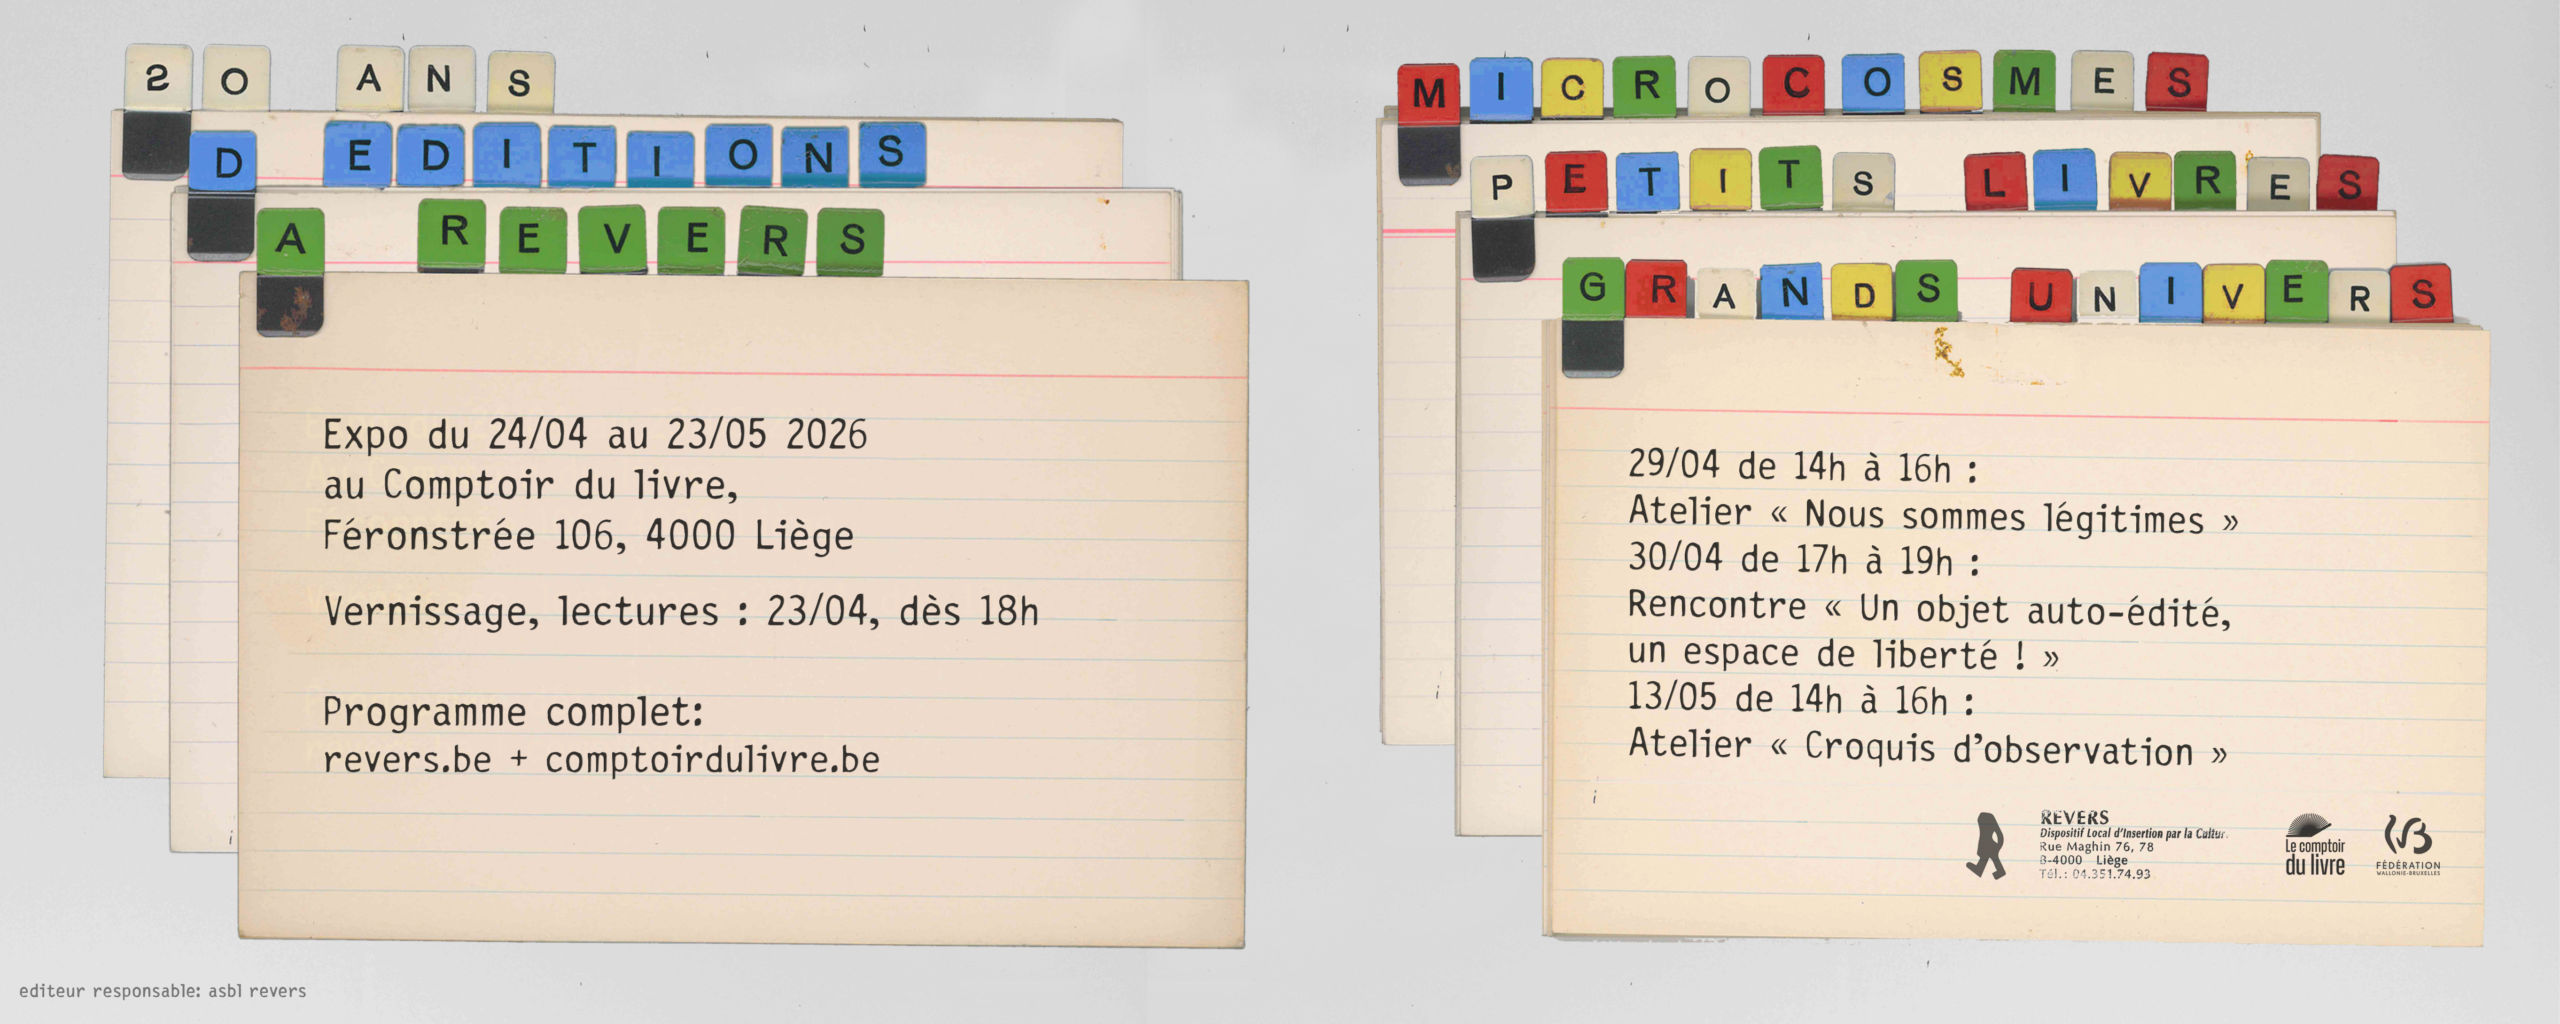 20 ANS
D EDITIONS
A REVERS
Expo du 24/04 au 23/05 2026
au Comptoir du livre,
Féronstrée 106, 4000 Liège
Vernissage, lectures : 23/04, dès 18h
Programme complet:
revers.be + comptoirdulivre.be
editeur responsable: asbl revers
MICROCOSMES
PETITS LIVRES
GRANDS UNIVERS
29/04 de 14h à 16h :
Atelier « Nous sommes légitimes »
30/04 de 17h à 19h :
Rencontre « Un objet auto-édité,
un espace de liberté ! »
13/05 de 14h à 16h :
Atelier « Croquis d’observation »
REVERS
Dispositif Local d'Insertion par la Cultur.
Rue Maghin 76, 78
B-4000 Liège
Tél.: 04.351.74.93
Le comptoir
du livre
FÉDÉRATION
WALLONIE-BRUXELLES